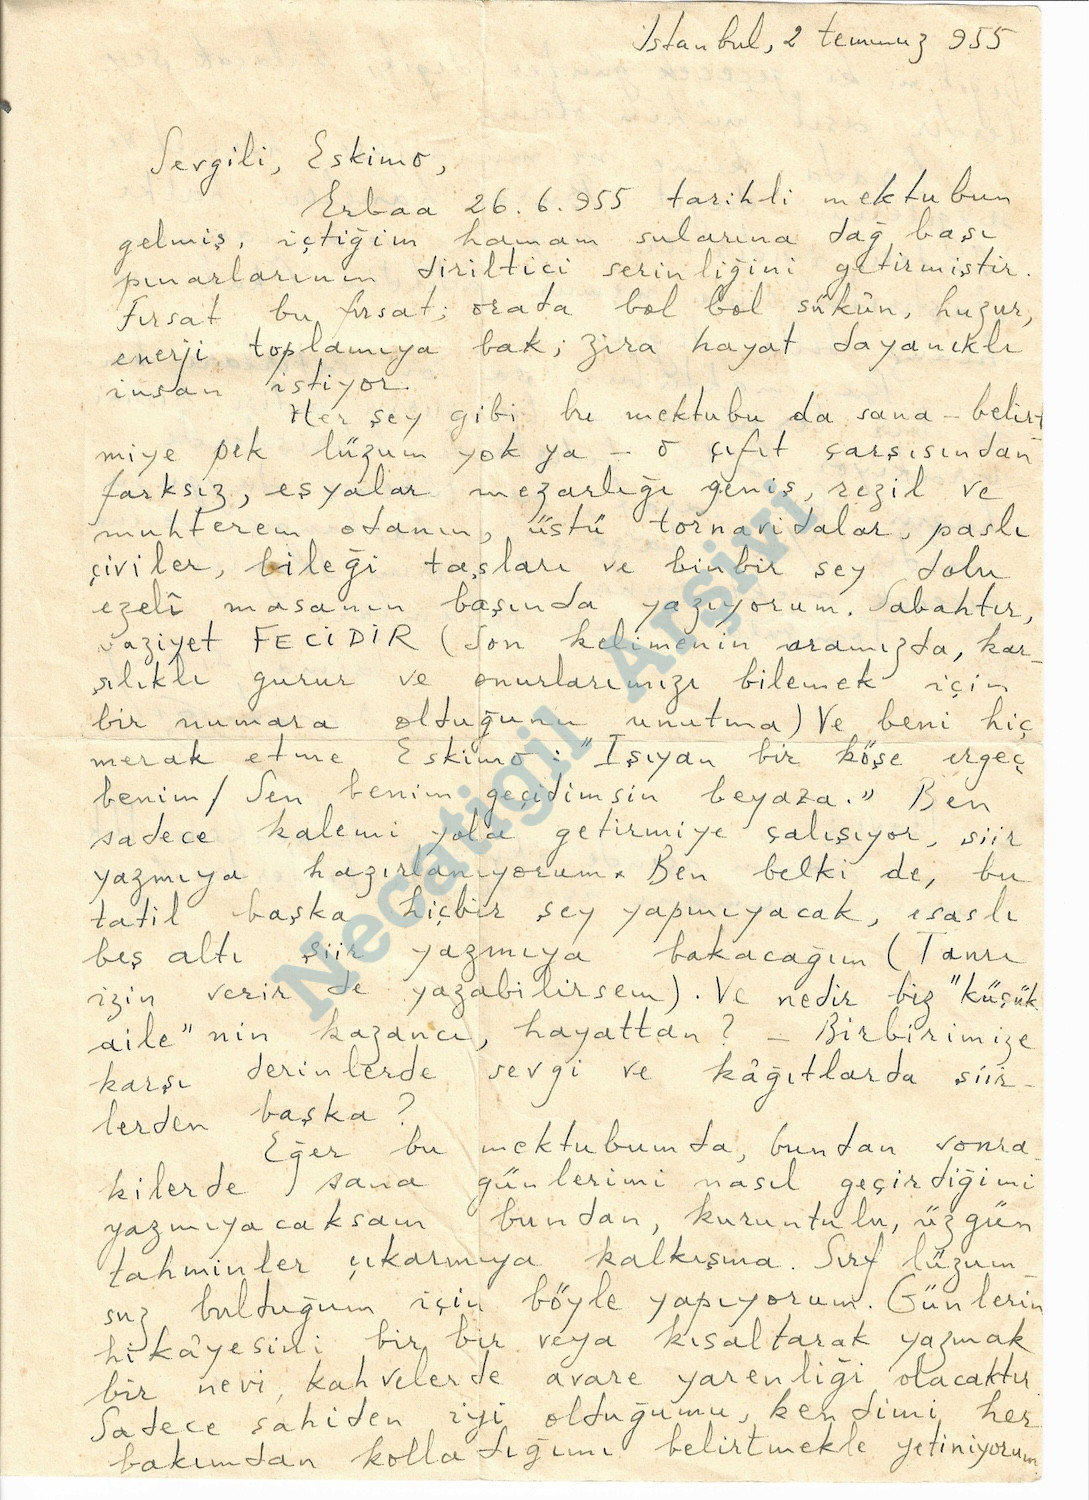 İstanbul, 2 temmuz 955
Sevgili, Eskimo,
Erbaa 26.6.955 tarihli mektubun
gelmiş, içtiğim hamam sularına dağ başı
pınarlarının diriltici serinliğini getirmiştir.
Fırsat bu fırsat; orada bol bol sükûn, huzur,
enerji toplamıya bak; zira hayat dayanıklı
insan istiyor.
Her şey gibi bu mektubu da sana – belirt-
miye pek lüzum yok ya – o çıfıt çarşısından
farksız, eşyalar mezarlığı geniş, rezil ve
muhterem odanın, üstü tornavidalar, paslı
çiviler, bileği taşları ve binbir şey dolu
ezelî masanın başında yazıyorum. Sabahtır,
vaziyet FECİDİR (Son kelimenin aramızda, kar-
şılıklı gurur ve onurlarımızı bilemek için
bir numara olduğunu unutma) Ve beni hiç
merak etme Eskimo: "Işıyan bir köşe ergeç
benim/ Sen benim geçidimsin beyaza." Ben
sadece kalemi yola getirmiye çalışıyor, şiir
yazmıya hazırlanıyorum. Ben belki de, bu
tatil başka hiçbir şey yapmıyacak, esaslı
beş altı şiir yazmıya bakacağım (Tanrı
izin verir de yazabilirsem). Ve nedir biz "küçük
aile" nin kazancı, hayattan? – Birbirimize
karşı derinlerde sevgi ve kâğıtlarda şiir-
lerden başka?
Eğer bu mektubumda, bundan sonra-
kilerde sana günlerimi nasıl geçirdiğimi
yazmıyacaksam bundan, kuruntulu, üzgün
tahminler çıkarmıya kalkışma. Sırf lüzum-
suz bulduğum için böyle yapıyorum. Günlerin
hikâyesini bir bir veya kısaltarak yazmak
bir nevi, kahvelerde avare yarenliği olacaktır.
Sadece sahiden iyi olduğumu, kendimi her
bakımdan kolladığımı belirtmekle yetiniyorum.
Necatigil Arşivi